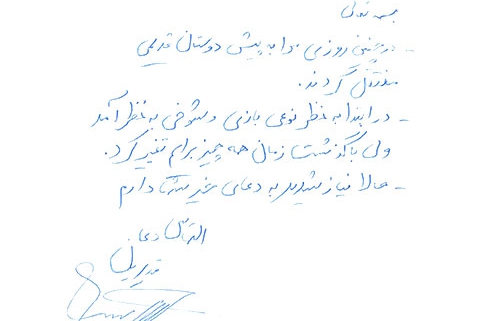 بسمه تعالی
- در چنین روزی مرا به پیش دوستان قدیمی
منتقل کردند.
- در ابتدا به نظر نوعی بازی و شوخی به نظر آمد
ولی با گذشت زمان همه چیز برایم تغییر کرد.
- حالا نیاز شدید به دعای خیر شما دارم
التماس دعا